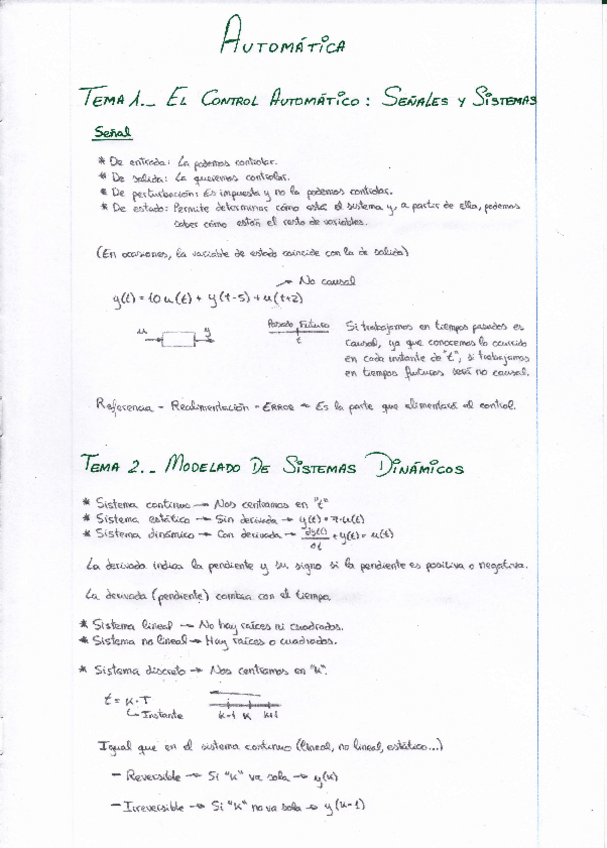 AUTOMÁTICA
TEMA 1._ EL CONTROL AUTOMÁTICO: SEÑALES Y SISTEMAS
Señal
* De entrada: La podemos controlar.
* De salida: La queremos controlar.
* De perturbación: Es impuesta y no la podemos controlar.
* De estado: Permite determinar cómo está el sistema y, a partir de ella, podemos
saber cómo están el resto de variables.
(En ocasiones, la variable de estado coincide con la de salida)
→ No causal
y(t) = 10u(t) + y(t-5) + u(t+2)
u y
Pasado Futuro
t
Si trabajamos en tiempos pasados es
causal, ya que conocemos lo ocurrido
en cada instante de "t", si trabajamos
en tiempos futuros será no causal.
Referencia - Realimentación = ERROR → Es la parte que alimentará al control.
TEMA 2._ MODELADO DE SISTEMAS DINÁMICOS
* Sistema continuo → Nos centramos en "t"
* Sistema estático → Sin derivada → y(t) = 7·u(t)
* Sistema dinámico → Con derivada → dy(t)/dt + y(t) = u(t)
La derivada indica la pendiente y su signo si la pendiente es positiva o negativa.
La derivada (pendiente) cambia con el tiempo.
* Sistema lineal → No hay raíces ni cuadrados.
* Sistema no lineal → Hay raíces o cuadrados.
* Sistema discreto → Nos centramos en "k".
t = k·T
↳ Instante
k-1 k k+1
Igual que en el sistema continuo (lineal, no lineal, estático...)
- Reversible → Si "k" va sola → y(k)
- Irreversible → Si "k" no va sola → y(k-1)